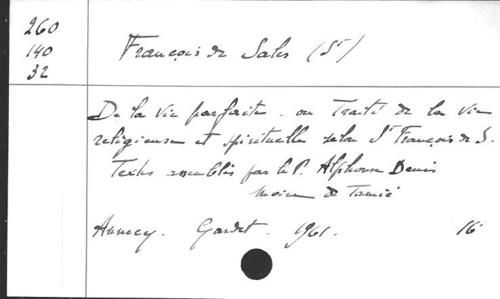 260
140
32
François de Sales (St)
De la vie parfaite. ou Traité de la vie
religieuse et spirituelle selon St François de S.
Textes assemblés par le P. Alphonse Denis
moine de Tamié
Annecy. Gardet. 1961. 16°